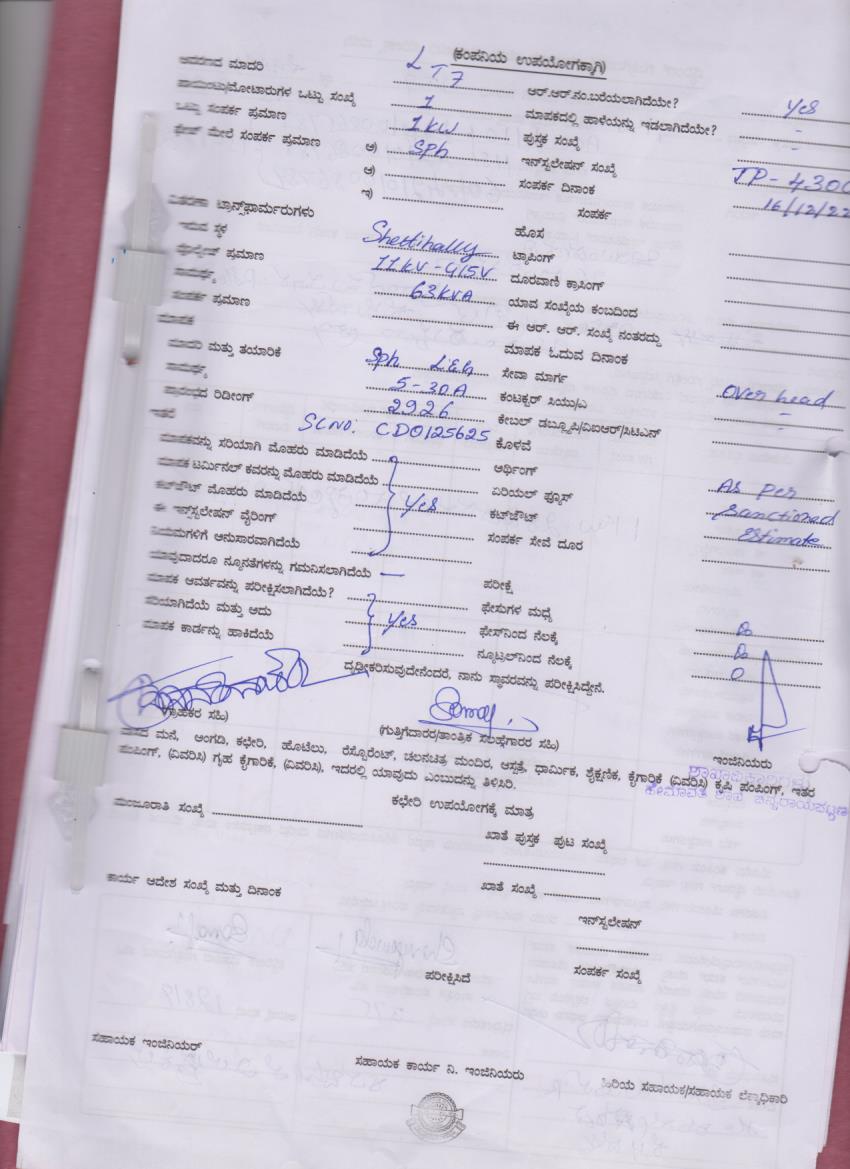 (ಕಂಪನಿಯ ಉಪಯೋಗಕ್ಕಾಗಿ)
ಆವರಣದ ಮಾದರಿ LT7 ಆರ್.ಆರ್.ನಂ.ಬರೆಯಲಾಗಿದೆಯೇ? yes
ಪಾಯಿಂಟು/ಮೋಟಾರುಗಳ ಒಟ್ಟು ಸಂಖ್ಯೆ 1 ಮಾಪಕದಲ್ಲಿ ಹಾಳೆಯನ್ನು ಇಡಲಾಗಿದೆಯೇ? -
ಒಟ್ಟು ಸಂಪರ್ಕ ಪ್ರಮಾಣ 1 kW ಪುಸ್ತಕ ಸಂಖ್ಯೆ -
ಫೇಸ್ ಮೇಲೆ ಸಂಪರ್ಕ ಪ್ರಮಾಣ ಅ) Sph ಇನ್‌ಸ್ಟಲೇಷನ್ ಸಂಖ್ಯೆ TP-430
ಆ) ಸಂಪರ್ಕ ದಿನಾಂಕ 16/12/22
ಇ) ಸಂಪರ್ಕ
ವಿತರಣಾ ಟ್ರಾನ್ಸ್‌ಫಾರ್ಮರುಗಳು ಹೊಸ
ಇರುವ ಸ್ಥಳ Shettihally ಟ್ಯಾಪಿಂಗ್
ವೋಲ್ಟೇಜ್ ಪ್ರಮಾಣ 11kV-415V ದೂರವಾಣಿ ಕ್ರಾಸಿಂಗ್
ಸಾಮರ್ಥ್ಯ 63kVA ಯಾವ ಸಂಖ್ಯೆಯ ಕಂಬದಿಂದ
ಸಂಪರ್ಕ ಪ್ರಮಾಣ ಈ ಆರ್. ಆರ್. ಸಂಖ್ಯೆ ನಂತರದ್ದು
ಮಾಪಕ ಮಾಪಕ ಓದುವ ದಿನಾಂಕ
ಮಾದರಿ ಮತ್ತು ತಯಾರಿಕೆ Sph L&G ಸೇವಾ ಮಾರ್ಗ Over head
ಸಾಮರ್ಥ್ಯ 5-30A ಕಂಟಕ್ಟರ್ ಸಿಯು/ಎ -
ಪ್ರಾರಂಭದ ರಿಡೀಂಗ್ 2926 ಕೇಬಲ್ ಡಬ್ಲ್ಯೂಪಿ/ವಿಐಆರ್/ಸಿಟಿಎನ್ -
ಇತರೆ SL NO: CD0125625 ಕೊಳವೆ
ಮಾಪಕವನ್ನು ಸರಿಯಾಗಿ ಮೊಹರು ಮಾಡಿದೆಯೆ ಅರ್ಥಿಂಗ್ As per
ಮಾಪಕ ಟರ್ಮಿನಲ್ ಕವರನ್ನು ಮೊಹರು ಮಾಡಿದೆಯೆ ಏರಿಯಲ್ ಫ್ಯೂಸ್ Sanctioned
ಕಟ್‌ಔಟ್ ಮೊಹರು ಮಾಡಿದೆಯೆ yes ಕಟ್‌ಔಟ್ estimate
ಈ ಇನ್ಸ್‌ಟಲೇಷನ್ ವೈರಿಂಗ್ ಸಂಪರ್ಕ ಸೇವೆ ದೂರ
ನಿಯಮಗಳಿಗೆ ಅನುಸಾರವಾಗಿದೆಯೆ
ಯಾವುದಾದರೂ ನ್ಯೂನತೆಗಳನ್ನು ಗಮನಿಸಲಾಗಿದೆಯೆ — ಪರೀಕ್ಷೆ
ಮಾಪಕ ಆವರ್ತವನ್ನು ಪರೀಕ್ಷಿಸಲಾಗಿದೆಯೆ? ಫೇಸುಗಳ ಮಧ್ಯೆ
ಸರಿಯಾಗಿದೆಯೆ ಮತ್ತು ಅದು yes ಫೇಸ್‌ನಿಂದ ನೆಲಕ್ಕೆ
ಮಾಪಕ ಕಾರ್ಡನ್ನು ಹಾಕಿದೆಯೆ ನ್ಯೂಟ್ರಲ್‌ನಿಂದ ನೆಲಕ್ಕೆ 0
ದೃಢೀಕರಿಸುವುದೇನೆಂದರೆ, ನಾನು ಸ್ಥಾವರವನ್ನು ಪರೀಕ್ಷಿಸಿದ್ದೇನೆ.
(ಗ್ರಾಹಕರ ಸಹಿ) (ಗುತ್ತಿಗೆದಾರರ/ತಾಂತ್ರಿಕ ಸಲಹೆಗಾರರ ಸಹಿ) ಇಂಜಿನಿಯರು
ವಾಸದ ಮನೆ, ಅಂಗಡಿ, ಕಛೇರಿ, ಹೊಟೆಲು, ರೆಸ್ಟೋರೆಂಟ್, ಚಲನಚಿತ್ರ ಮಂದಿರ, ಆಸ್ಪತ್ರೆ, ಧಾರ್ಮಿಕ, ಶೈಕ್ಷಣಿಕ, ಕೈಗಾರಿಕೆ (ವಿವರಿಸಿ) ಕೃಷಿ ಪಂಪಿಂಗ್, ಇತರ
ಪಂಪಿಂಗ್, (ವಿವರಿಸಿ) ಗೃಹ ಕೈಗಾರಿಕೆ, (ವಿವರಿಸಿ), ಇದರಲ್ಲಿ ಯಾವುದು ಎಂಬುದನ್ನು ತಿಳಿಸಿರಿ.
ಶಾಖಾಧಿಕಾರಿಗಳು
ಕಛೇರಿ ಉಪಯೋಗಕ್ಕೆ ಮಾತ್ರ
ಮಂಜೂರಾತಿ ಸಂಖ್ಯೆ
ಖಾತೆ ಪುಸ್ತಕ ಪುಟ ಸಂಖ್ಯೆ
ಕಾರ್ಯ ಆದೇಶ ಸಂಖ್ಯೆ ಮತ್ತು ದಿನಾಂಕ ಖಾತೆ ಸಂಖ್ಯೆ
ಇನ್‌ಸ್ಟಲೇಷನ್
ಪರೀಕ್ಷಿಸಿದೆ ಸಂಪರ್ಕ ಸಂಖ್ಯೆ
ಸಹಾಯಕ ಇಂಜಿನಿಯರ್ ಸಹಾಯಕ ಕಾರ್ಯ ನಿ. ಇಂಜಿನಿಯರು ಹಿರಿಯ ಸಹಾಯಕ/ಸಹಾಯಕ ಲೆಕ್ಕಾಧಿಕಾರಿ